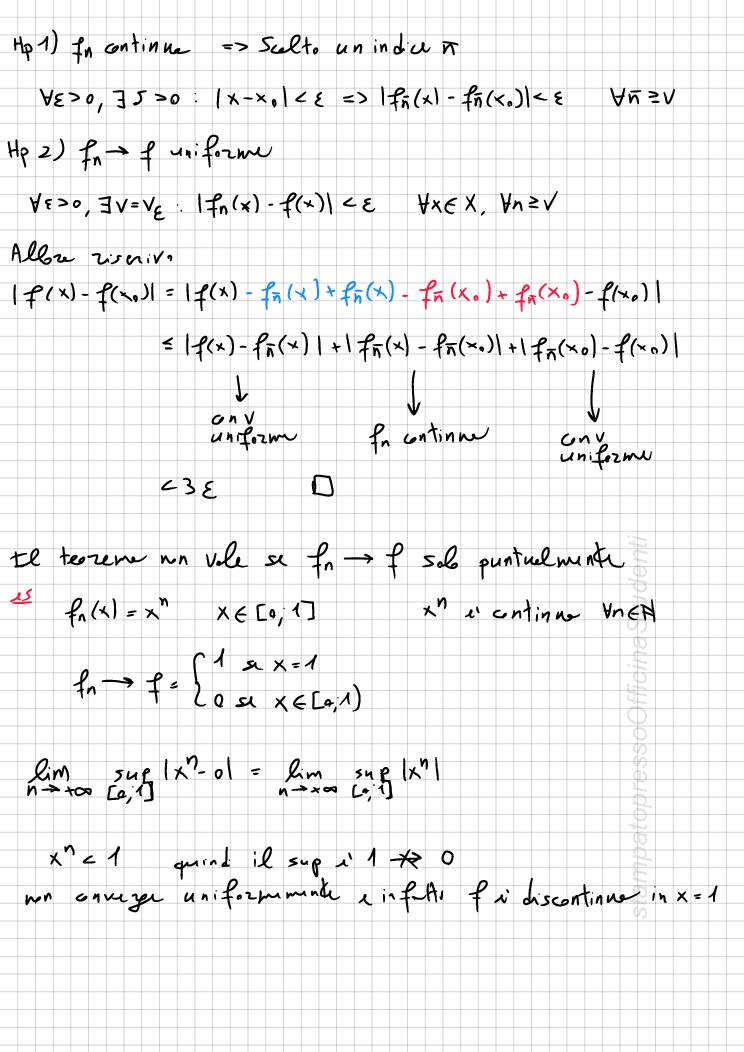 Hp 1) fn continue => Scelto un indice n̄
∀ε>0, ∃ δ>0 : |x-x₀| < ε => |fn̄(x) - fn̄(x₀)| < ε ∀n̄ ≥ ν
Hp 2) fn → f uniforme
∀ε>0, ∃ν=νε : |fn(x) - f(x)| < ε ∀x∈X, ∀n≥ν
Allora riscrivo
|f(x) - f(x₀)| = |f(x) - fn̄(x) + fn̄(x) - fn̄(x₀) + fn̄(x₀) - f(x₀)|
≤ |f(x) - fn̄(x)| + |fn̄(x) - fn̄(x₀)| + |fn̄(x₀) - f(x₀)|
↓ ↓ ↓
conv uniforme fn continue conv uniforme
< 3ε □
Il teorema non vale se fn → f solo puntualmente
es fn(x) = xⁿ x∈[0;1] xⁿ è continua ∀n∈ℕ
fn → f = { 1 se x=1
0 se x∈[0;1)
lim n→+∞ sup [0;1] |xⁿ-0| = lim n→+∞ sup [0;1] |xⁿ|
xⁿ < 1 quindi il sup è 1 ↛ 0
non converge uniformemente e infatti f è discontinua in x=1
stampatopressoOfficinaStudenti